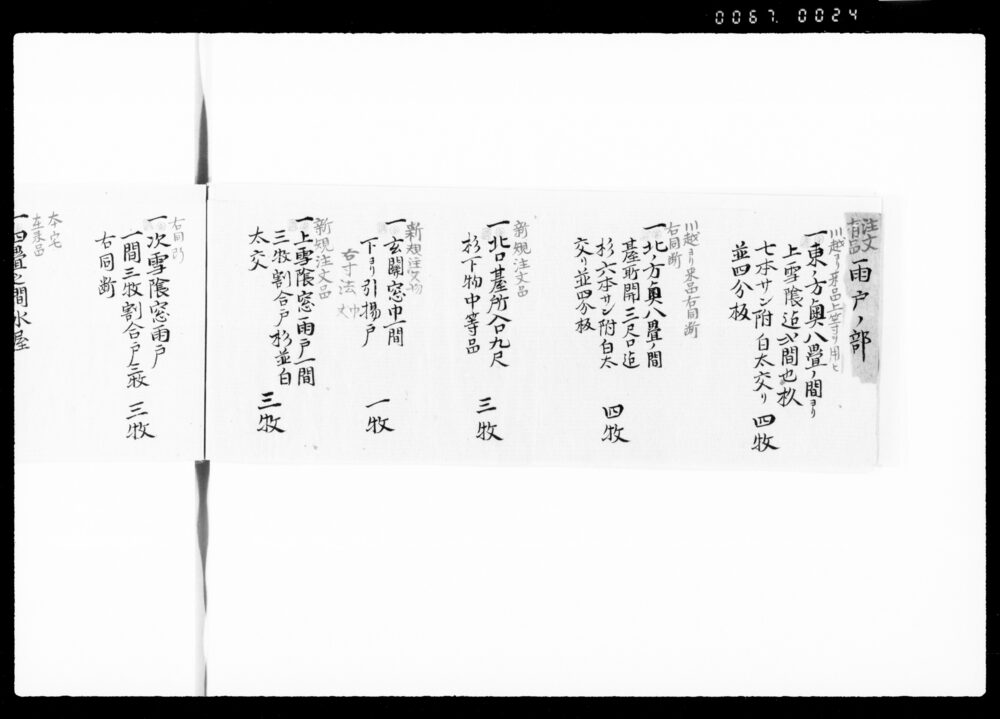 0067. 0024
注文
有品
一雨戸ノ部
川越ヨリ来品
一東ノ方奥八畳ノ間ヨリ
上雪隂迠弐間也杦
七本サン附白太交リ 四牧
並四分板
川越ヨリ来品右同断
右同断
一北ノ方奥八畳ノ間
䑓所開三尺口迠
杉六本サン附白太 四牧
交リ並四分板
新規注文品
一北口䑓所入口九尺
杉下物中等品 三牧
新規注文物
一玄関窓巾一間
下ヨリ引揚戸 一牧
右寸法巾丈
新規注文品
一上雪隂窓雨戸一間
三牧割合戸杉並白 三牧
太交
右同断
一次雪隂窓雨戸
一間三牧割合戸三牧 三牧
右同断
本宅
在来品
一四畳之間水屋